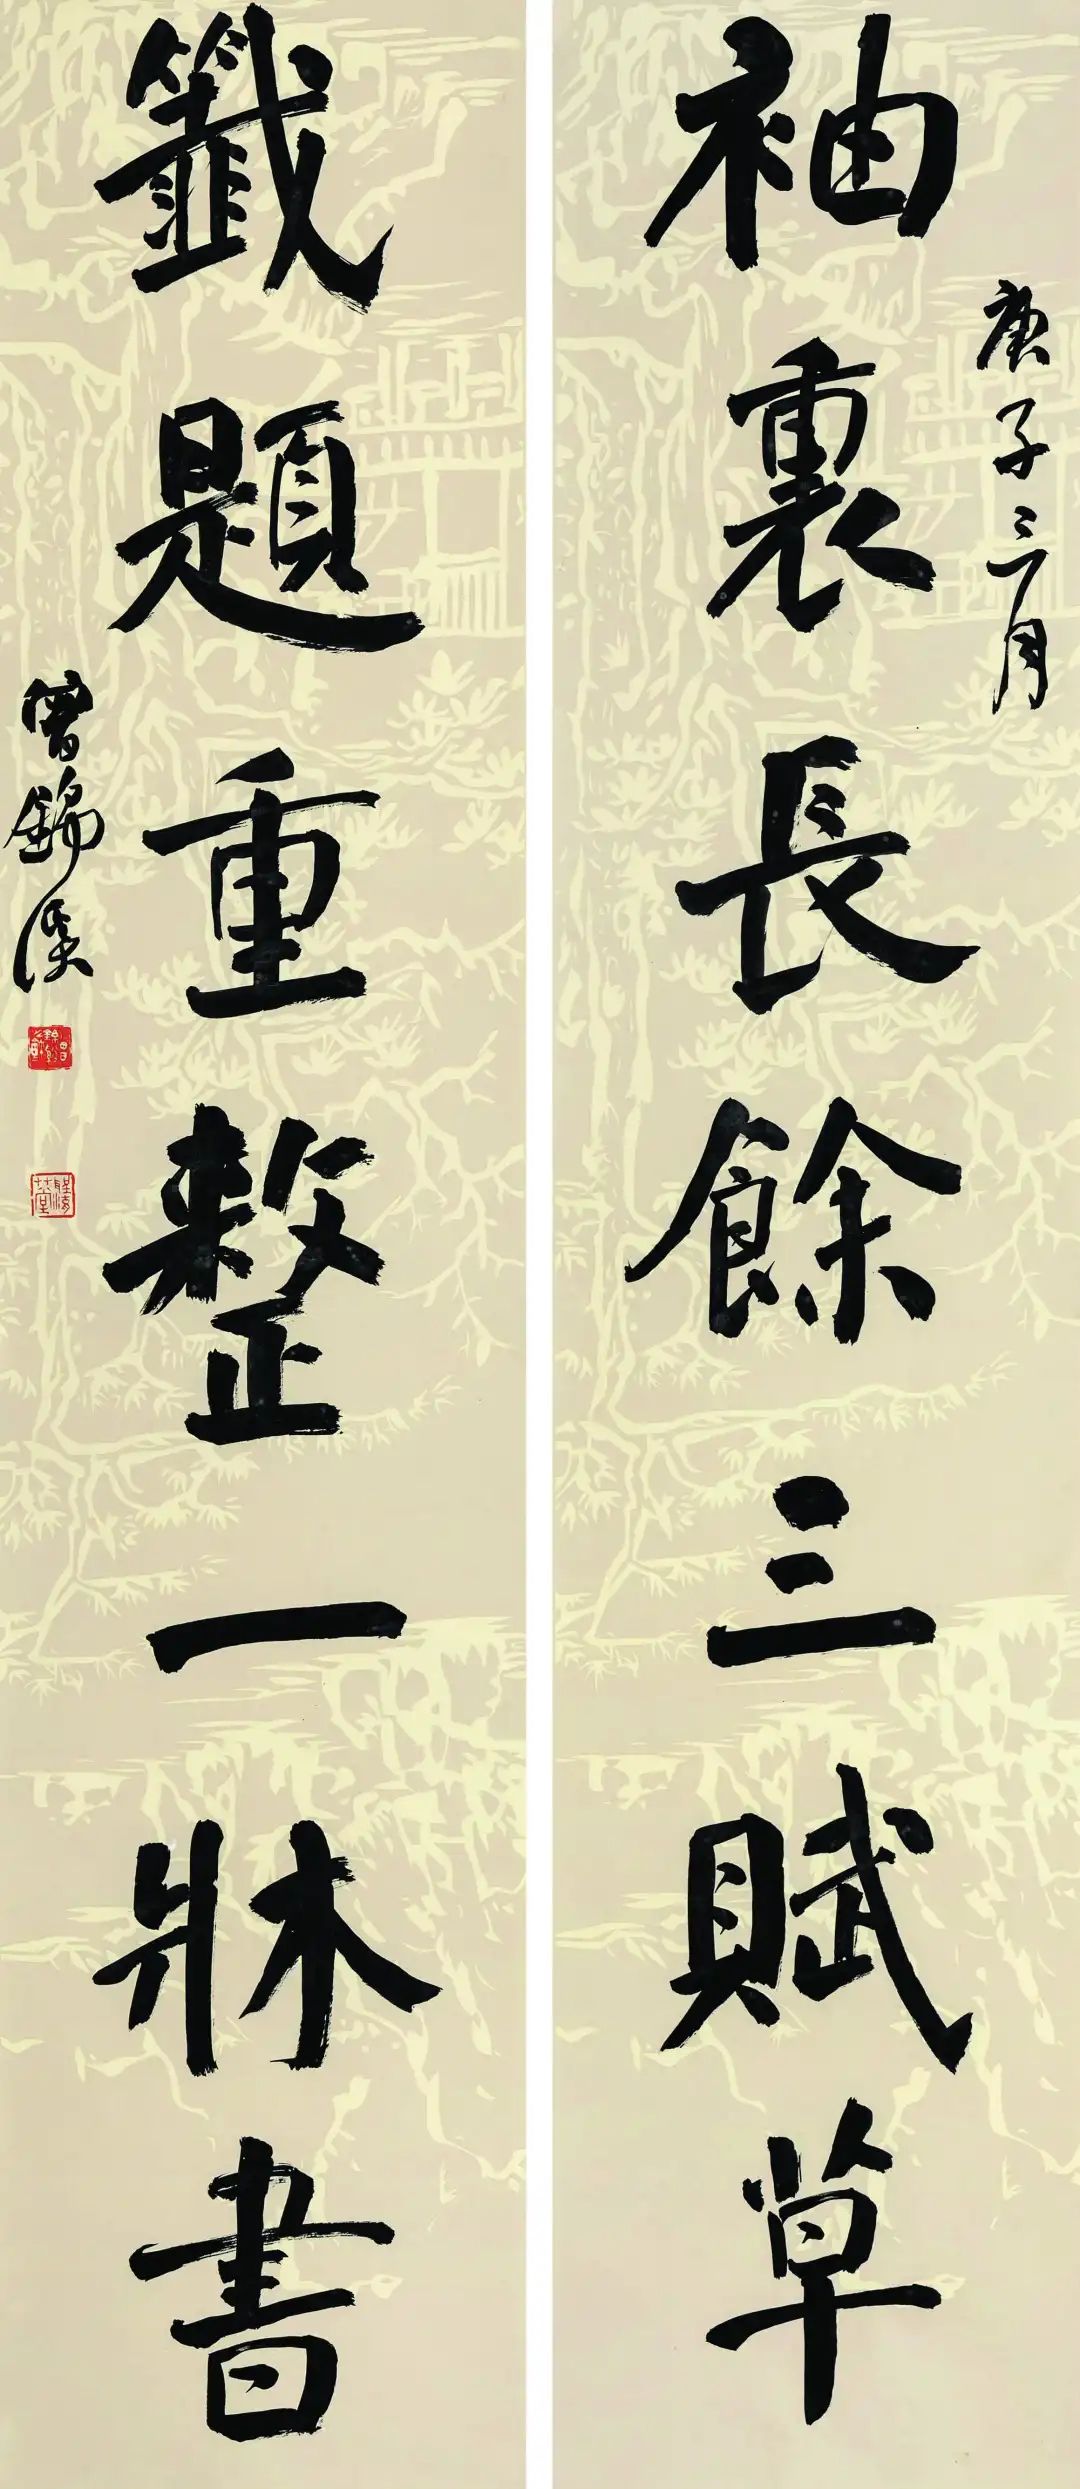 袖裏長餘三賦草
庚子三月
籤題重整一牀書
曾錦溪